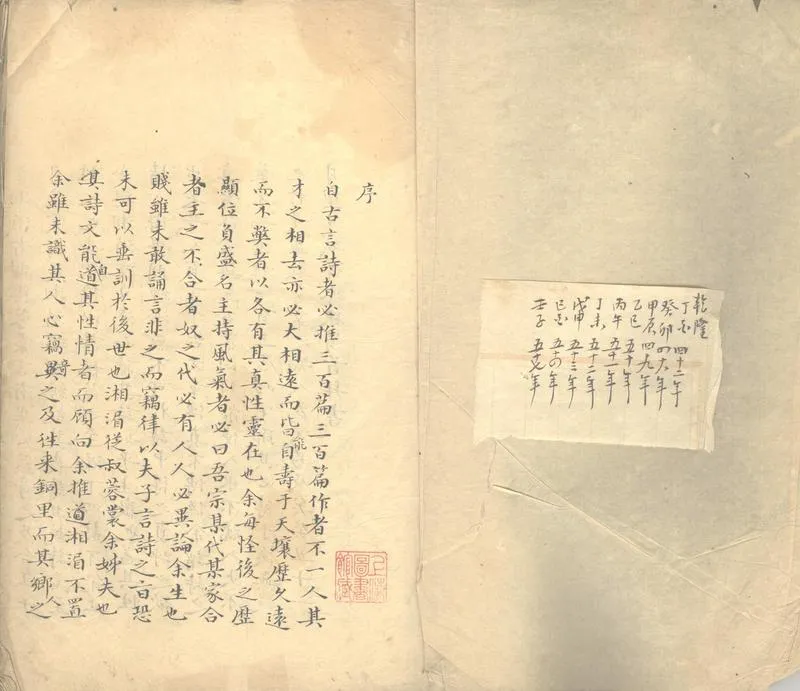 乾隆
丁酉 四十二年
癸卯 四八年
甲辰 四九年
乙巳 五十年
丙午 五十一年
丁未 五十二年
戊申 五十三年
己酉 五十四年
壬子 五七年
序
自古言詩者必推三百篇三百篇作者不一人其
才之相去亦必大相遠而皆能自壽于天壤歷久遠
而不獘者以各有其真性靈在也余每怪後之歷
顯位負盛名主持風氣者必曰吾宗某代某家合
者主之不合者奴之代必有人人必異論余生也
賤雖未敢誦言非之而竊律以夫子言詩之旨恐
未可以垂訓於後世也湘湄從叔蓉裳余姊夫也
其詩文能自道其性情者而顧向余推道湘湄不置
余雖未識其人心竊奇之及往来銅里而其鄉人之
上海圖書館藏